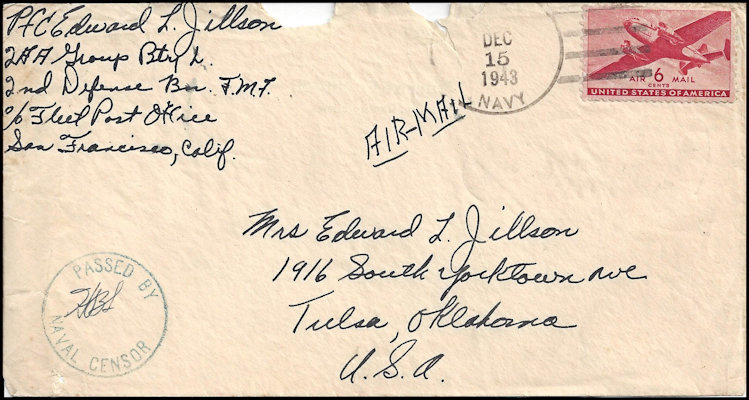 Pfc Edward L. Jillson
2AA Group Btry L.
2nd Defense Bn. F.M.F.
c/o Fleet Post Office
San Francisco, Calif.
DEC
15
1943
NAVY
AIR 6 MAIL
CENTS
UNITED STATES OF AMERICA
AIR-MAIL
Mrs Edward L. Jillson
1916 South Yorktown Ave
Tulsa, Oklahoma
U.S.A.
PASSED BY
NAVAL CENSOR